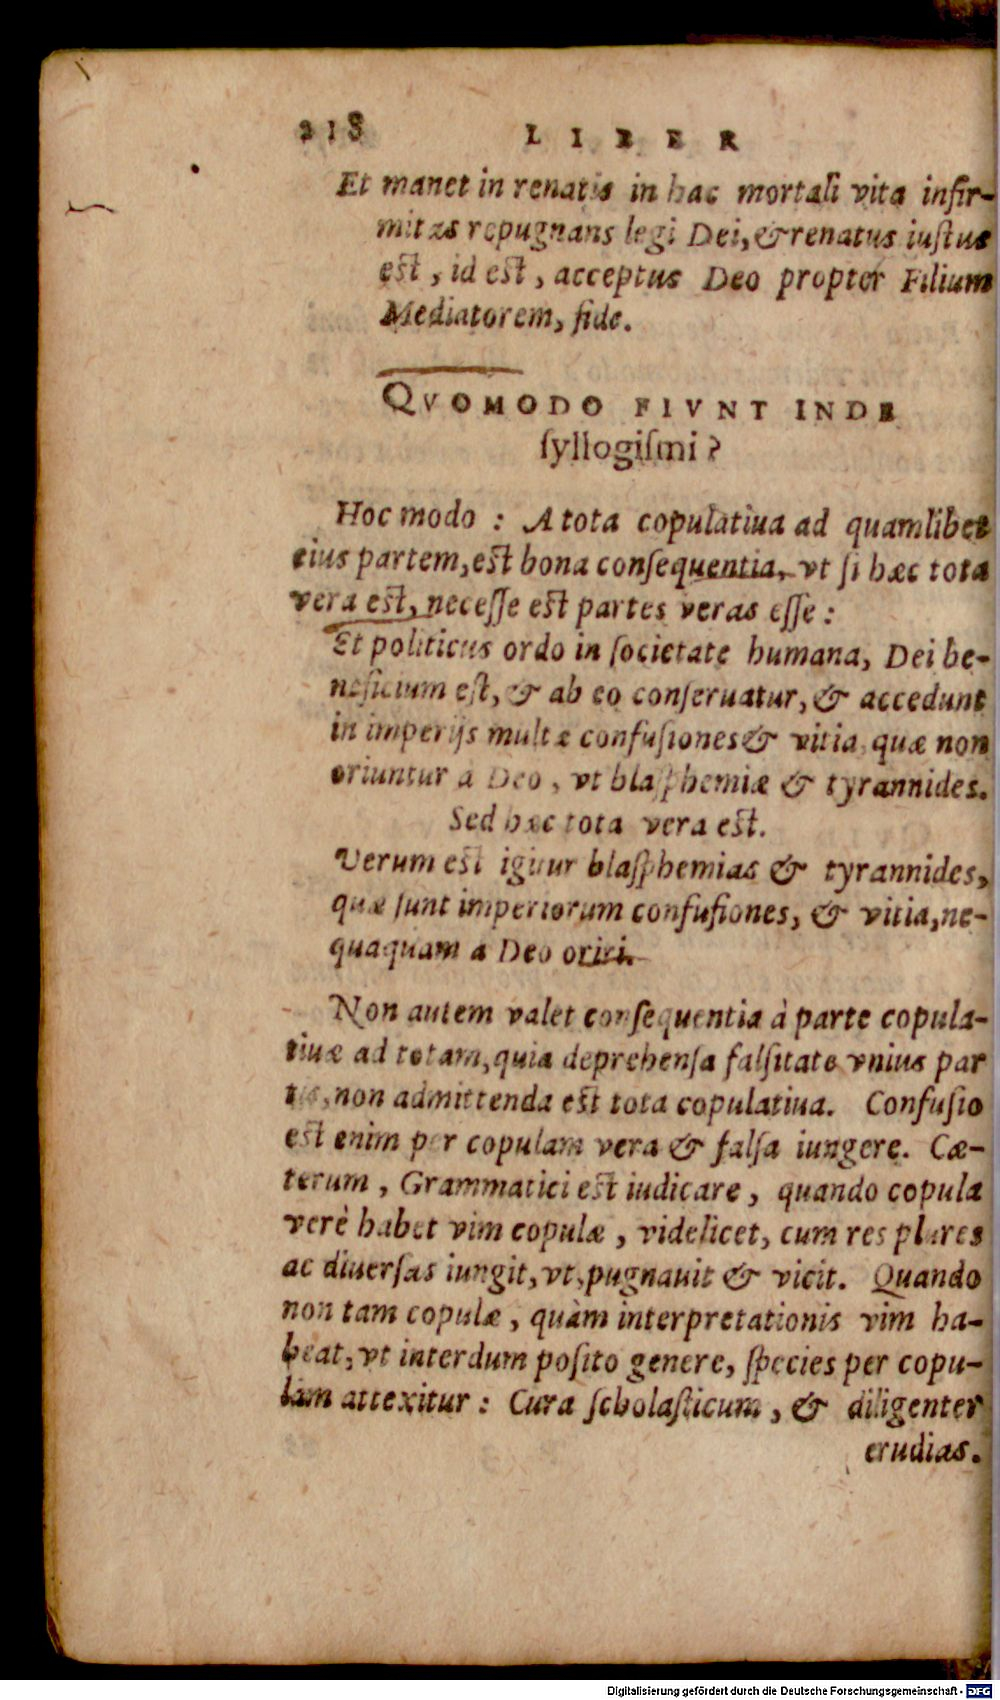 218 LIBER
Et manet in renatis in hac mortali vita infir-
mitas repugnans legi Dei, & renatus iustus
est, id est, acceptus Deo propter Filium
Mediatorem, fide.
QVOMODO FIVNT INDE
syllogismi?
Hoc modo : A tota copulatiua ad quamlibet
eius partem, est bona consequentia, vt si hæc tota
vera est, necesse est partes veras esse :
Et politicus ordo in societate humana, Dei be-
neficium est, & ab eo conseruatur, & accedunt
in imperijs multæ confusiones & vitia quæ non
oriuntur a Deo, vt blasphemiæ & tyrannides.
Sed hæc tota vera est.
Verum est igitur blasphemias & tyrannides,
quæ sunt imperiorum confusiones, & vitia, ne-
quaquam a Deo oriri.
Non autem valet consequentia à parte copula-
tiuæ ad totam, quia deprehensa falsitate vnius par
tis, non admittenda est tota copulatiua. Confusio
est enim per copulam vera & falsa iungere. Cæ-
terum, Grammatici est iudicare, quando copula
verè habet vim copulæ, videlicet, cum res plures
ac diuersas iungit, vt, pugnauit & vicit. Quando
non tam copulæ, quàm interpretationis vim ha-
beat, vt interdum posito genere, species per copu-
lam attexitur : Cura scholasticum, & diligenter
erudias.
Digitalisierung gefördert durch die Deutsche Forschungsgemeinschaft - DFG